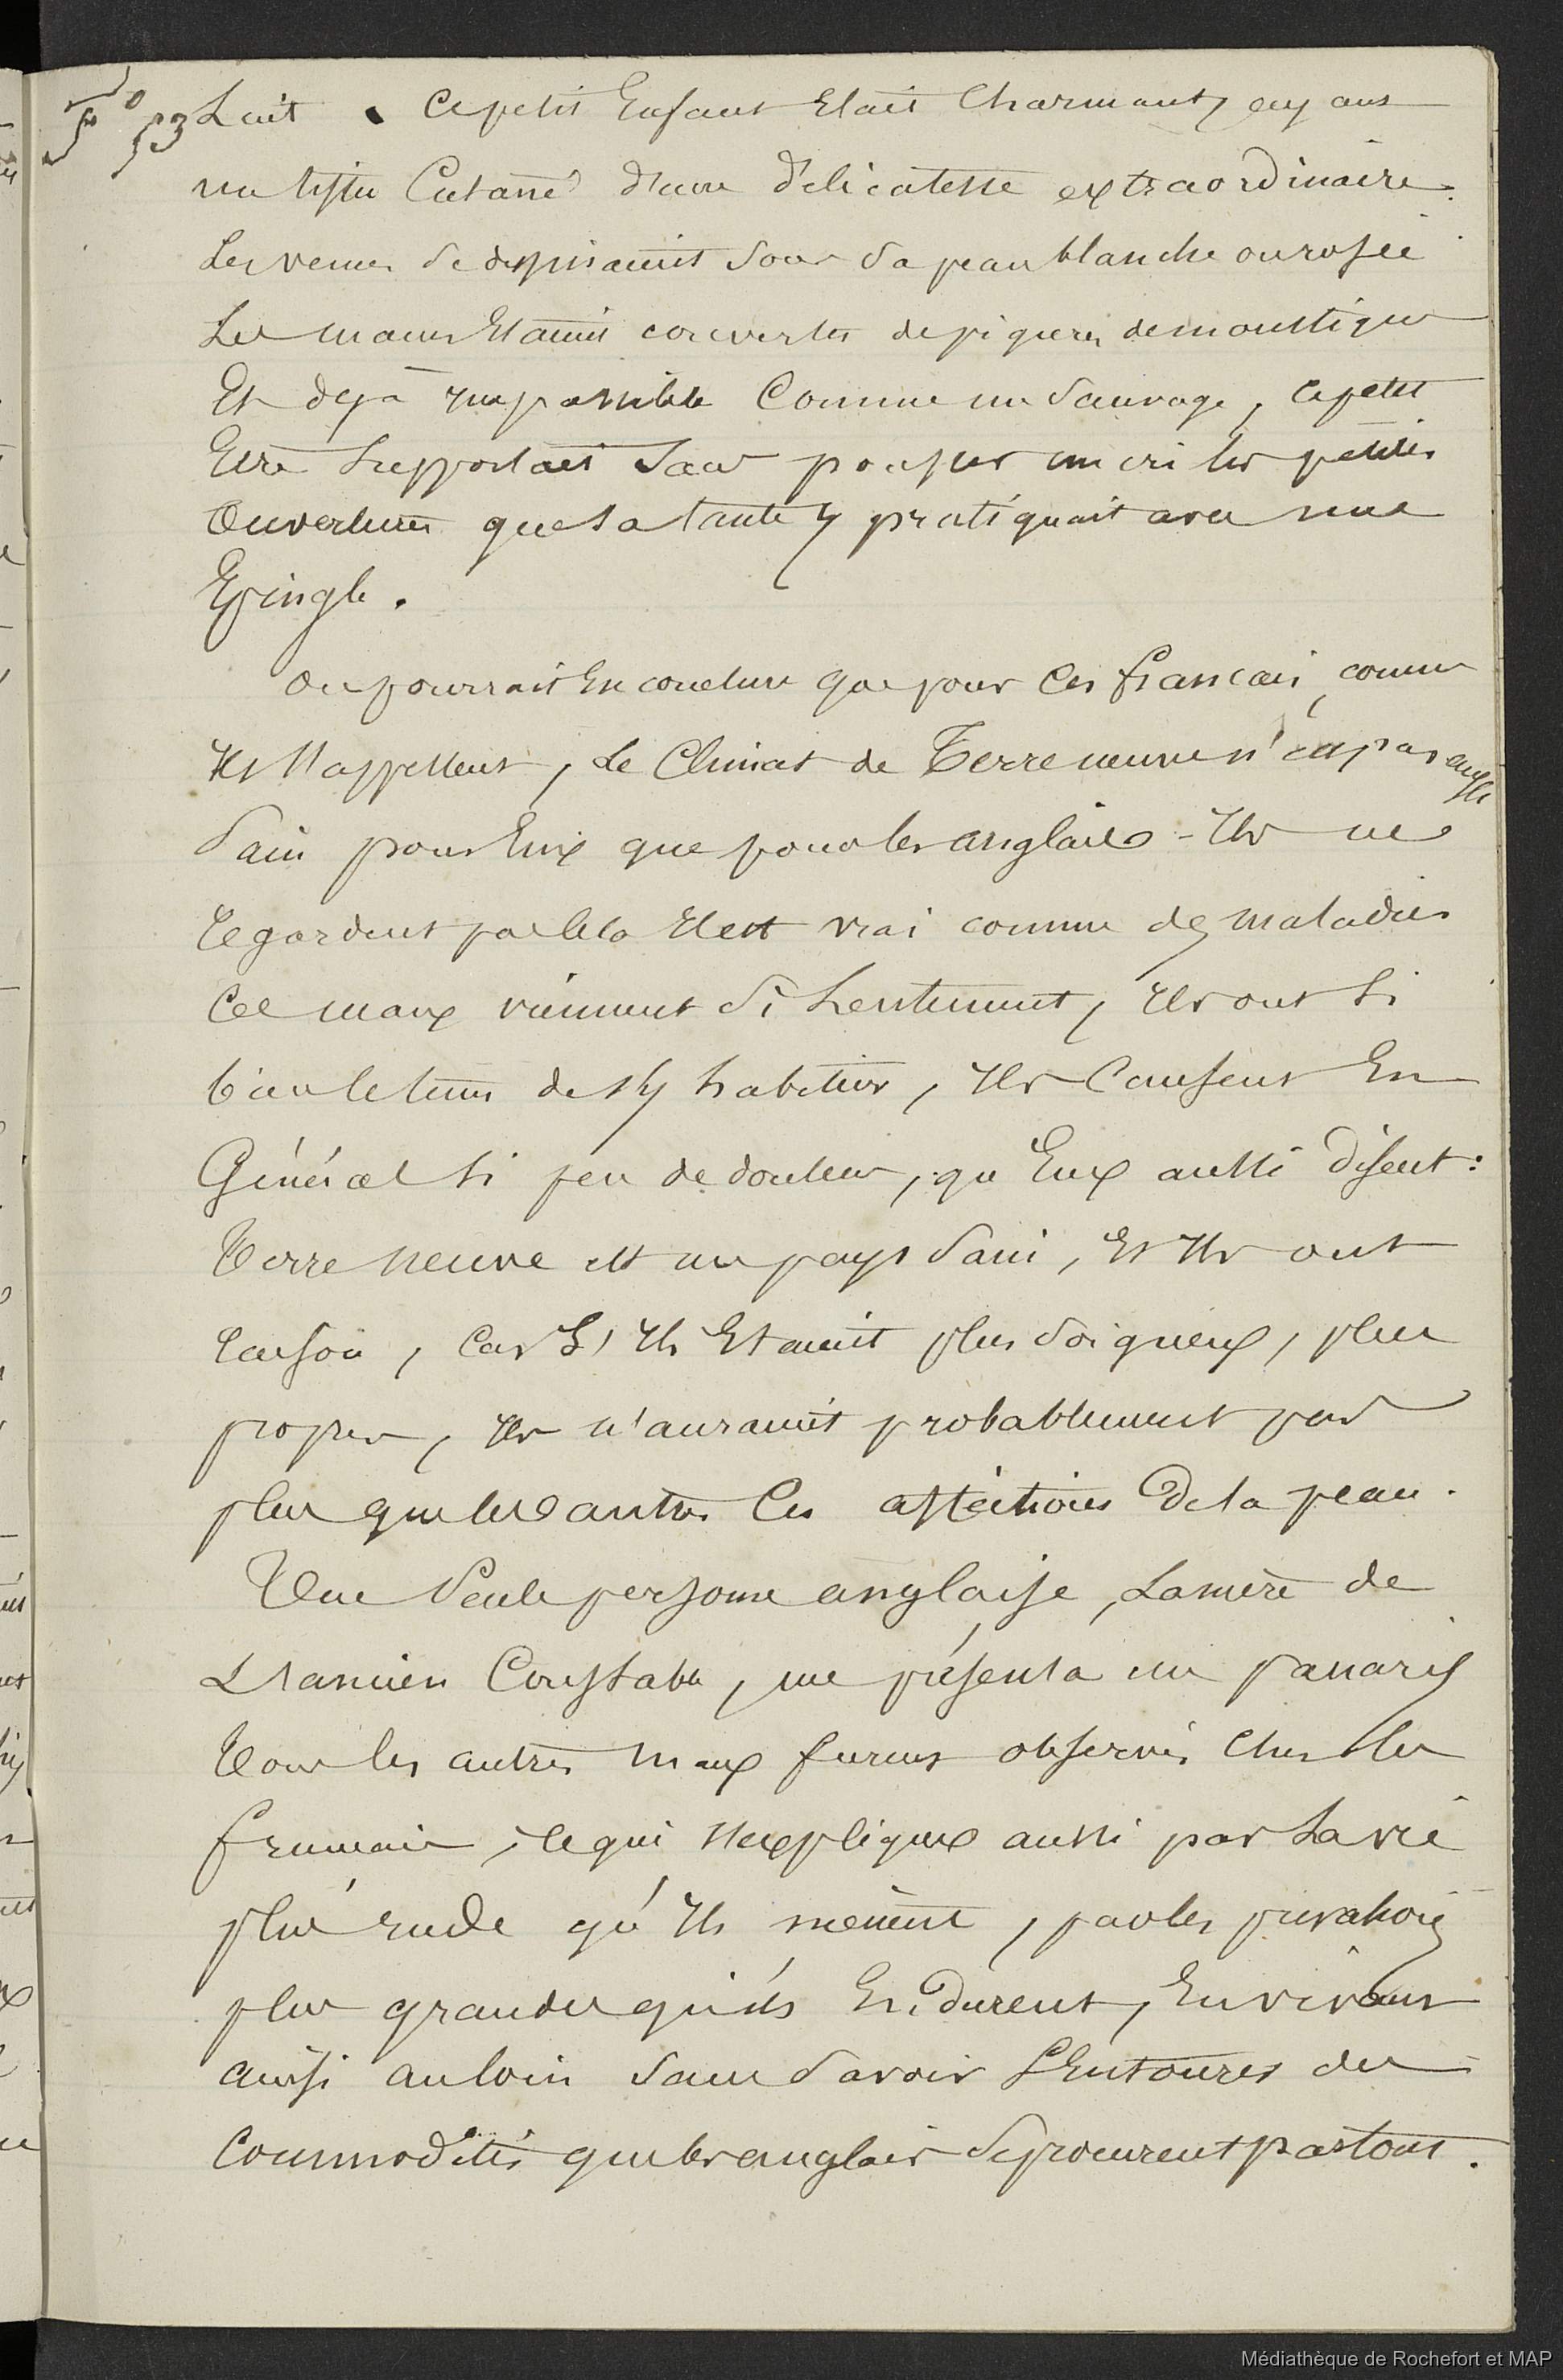 Fo 53 Lait. Ce petit Enfant Etait Charmant, ayant
un tissu Cutané d'une délicatesse extraordinaire.
Les veines se dessinaient sous sa peau blanche ou rosée
Les mains Etaient couvertes de piqures de moustiques
Et déjà impassible Comme un Sauvage, ce petit
Etre supportait sans pousser un cri les petites
Ouvertures que sa tante y pratiquait avec une
Epingle.
On pourrait En conclure que pour Ces francais, comme
Ils s'appellent, Le Climat de Terre neuve n'est pas aussi
Sain pour Eux que pour les anglais - Ils ne
Regardent pas cela Il est vrai comme des maladies
Ces maux viennent si Lentement, Ils ont si
bien le tems de s'y habituer, Ils Causent En
Général si peu de douleur, qu'Eux aussi disent:
Terre neuve est un pays Sain, Et Ils ont
raison, Car S'Ils Etaient plus Soigneux, plus
propres, Ils n'auraient probablement pas
plus que les autres Ces affections De la peau.
Une Seule personne anglaise, La mère de
L'ancien Constable, me présenta un panaris
Tous les autres maux furent observés Chez les
francais, ce qui s'explique aussi par La vie
plus rude qu'Ils mènent, par les privations
plus grandes qu'ils Endurent, En vivant
ainsi au loin Sans Savoir S'Entourer des
Commodités que les anglais Se procurent partout.
Médiathèque de Rochefort et MAP